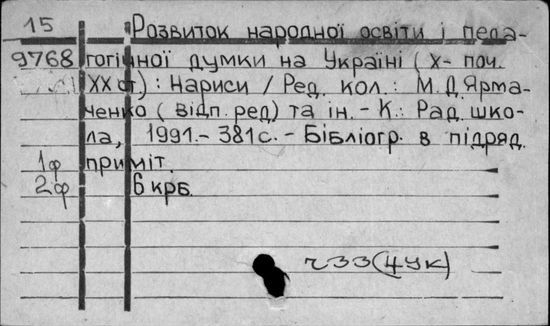 15 Розвиток народної освіти і педа-
9768 гогічної думки на Україні (X- поч.
XX ст.) : Нариси / Ред. кол.: М.Д.Ярма-
ченко (відп. ред) та ін. - К.: Рад. шко-
ла, 1991.- 381с.- Бібліогр. в підряд.
1ф приміт.
2ф 6 крб.
ч33(4УК)